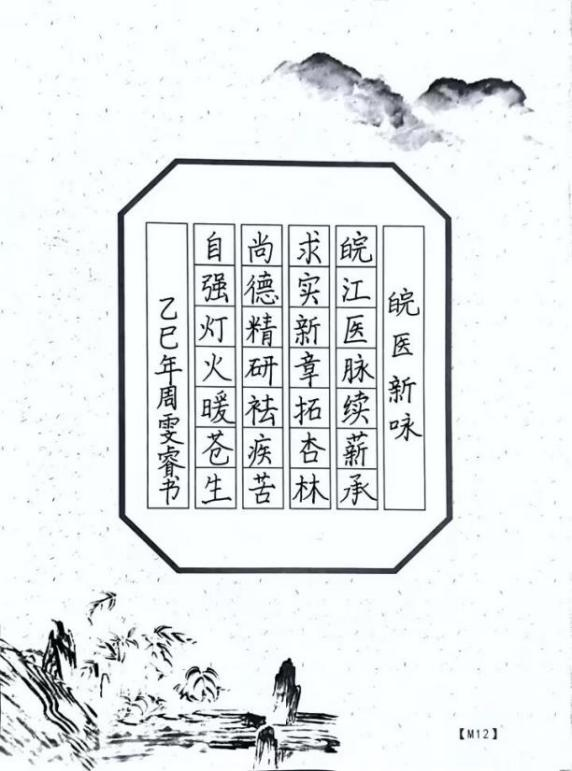 皖医新咏
皖江医脉续薪承
求实新章拓杏林
尚德精研祛疾苦
自强灯火暖苍生
乙巳年周雯睿书
【M12】